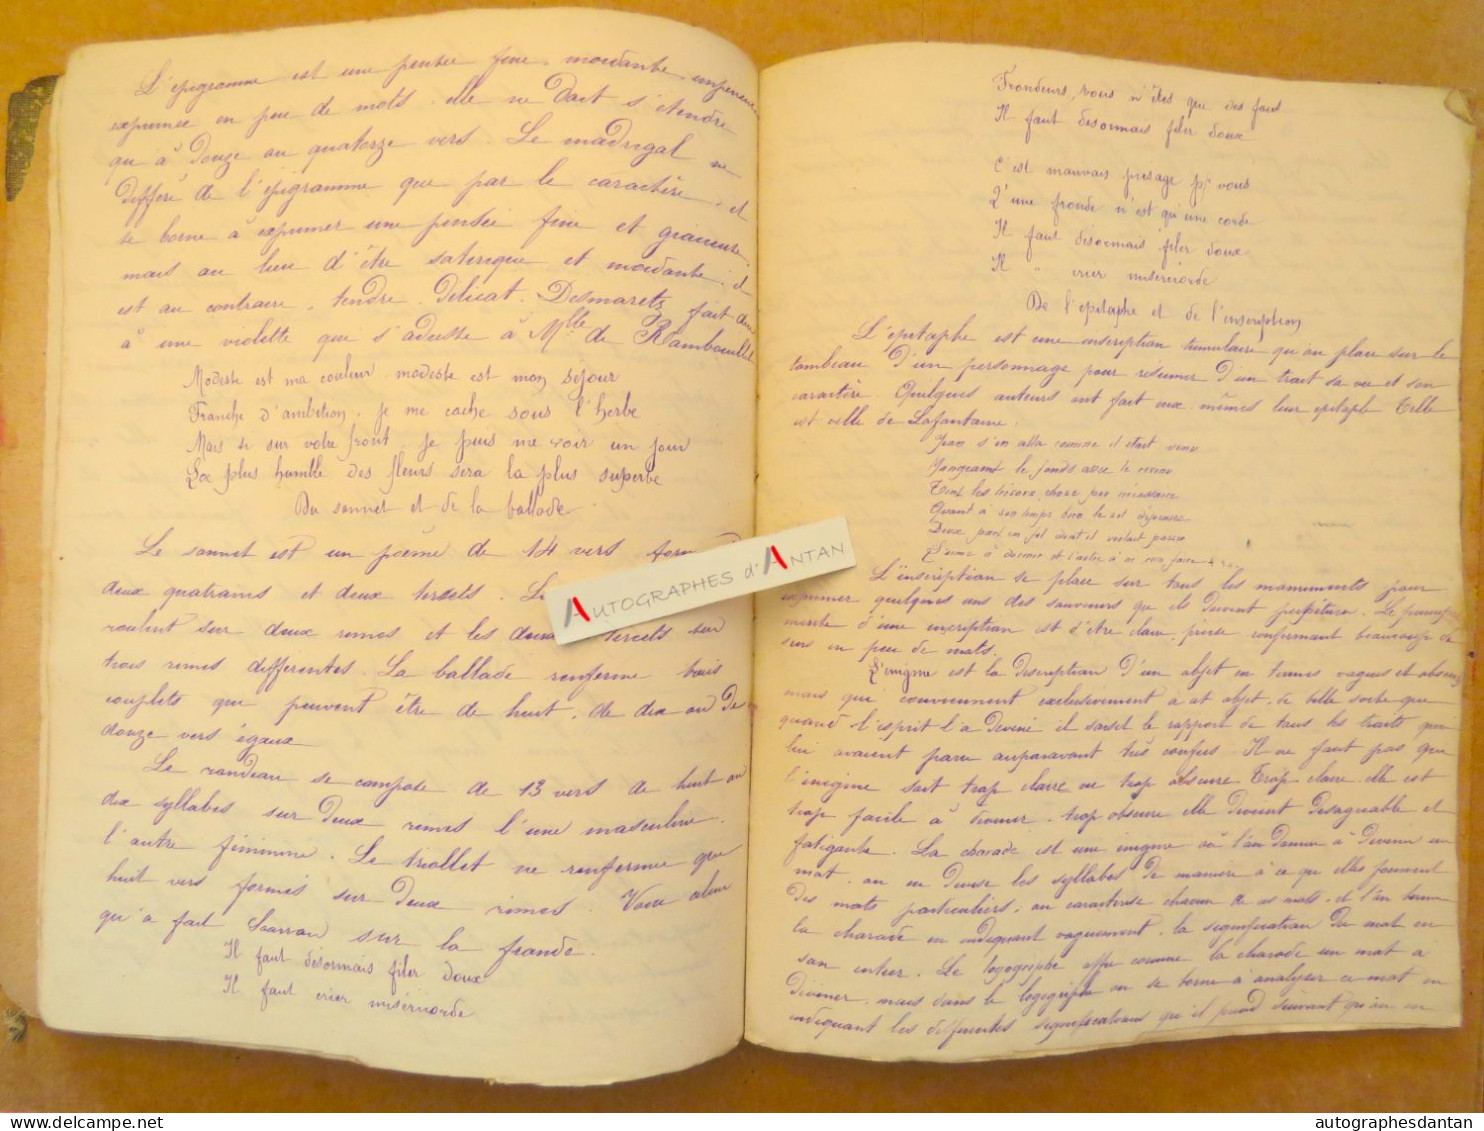 L'épigramme est une pensée fine, mordante
exprimée en peu de mots. elle ne doit s'étendre
qu'à douze ou quatorze vers. Le madrigal ne
diffère de l'épigramme que par le caractère, et
se borne à exprimer une pensée fine et gracieuse,
mais au lieu d'être satirique et mordante, il
est au contraire, tendre, délicat. Desmaretz fait dire
à une violette que s'adresse à Mlle de Rambouillet
Modeste est ma couleur modeste est mon séjour
Franche d'ambition, je me cache sous l'herbe
Mais si sur votre front, je puis me voir un jour
La plus humble des fleurs sera la plus superbe
Du sonnet et de la ballade
Le sonnet est un poème de 14 vers
deux quatrains et deux tercets.
roulent sur deux rimes et les tercets sur
trois rimes différentes. La ballade renferme trois
couplets qui peuvent être de huit, de dix ou de
douze vers égaux
Le rondeau se compose de 13 vers de huit ou
dix syllabes sur deux rimes l'une masculine,
l'autre féminine. Le triollet ne renferme que
huit vers formés sur deux rimes. Voici celui
qu'a fait Scarron sur la fronde.
Il faut désormais filer doux
Il faut crier miséricorde
Frondeurs, vous n'êtes que des fous
Il faut désormais filer doux
C'est mauvais présage pr vous
Q'une fronde n'est qu'une corde
Il faut désormais filer doux
Il " crier miséricorde
De l'épitaphe et de l'inscription
L'épitaphe est une inscription tumulaire qu'on place sur le
tombeau d'un personnage pour résumer d'un trait sa vie et son
caractère. Quelques auteurs ont fait eux-mêmes leur épitaphe Telle
est celle de Lafontaine.
Jean s'en alla comme il était venu
Mangeant le fonds avec le revenu
Tint les trésors chose peu nécessaire
Quant à son temps bien le sut dépenser
Deux parts en fit dont il voulait passer
L'une à dormir et l'autre à ne rien faire
L'inscription se place sur tous les monuments pour
exprimer quelques uns des souvenirs qu'ils doivent perpétuer. Le principal
mérite d'une inscription est d'être claire, précise renfermant beaucoup de
sens en peu de mots.
L'énigme est la description d'un objet en termes vagues et obscurs
mais qui conviennent exclusivement à cet objet, de telle sorte que
quand l'esprit l'a deviné il saisit le rapport de tous les traits qui
lui avaient paru auparavant très confus. Il ne faut pas que
l'énigme soit trop claire ou trop obscure Trop claire, elle est
trop facile à deviner, trop obscure elle devient désagréable et
fatigante. La charade est une énigme où l'on donne à deviner un
mot, on en divise les syllabes de manière à ce qu'elles forment
des mots particuliers, on caractérise chacun de ces mots, et l'on termine
la charade en indiquant vaguement la signification du mot en
son entier. Le logogriphe offre comme la charade un mot à
deviner, mais dans le logogriphe on se borne à analyser ce mot en
indiquant les différentes significations qu'il prend suivant qu'on en
AUTOGRAPHES d'ANTAN
autographesdantan